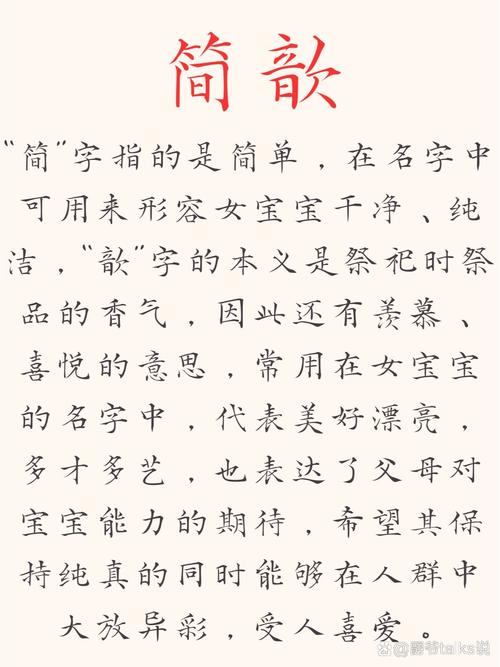 简歆
“简”字指的是简单，在名字中
可用来形容女宝宝干净、纯
洁，“歆”字的本义是祭祀时祭
品的香气，因此还有羡慕、
喜悦的意思，常用在女宝宝
的名字中，代表美好漂亮，
多才多艺，也表达了父母对
宝宝能力的期待，希望其保
持纯真的同时能够在人群中
大放异彩，受人喜爱。
爵爷talks说